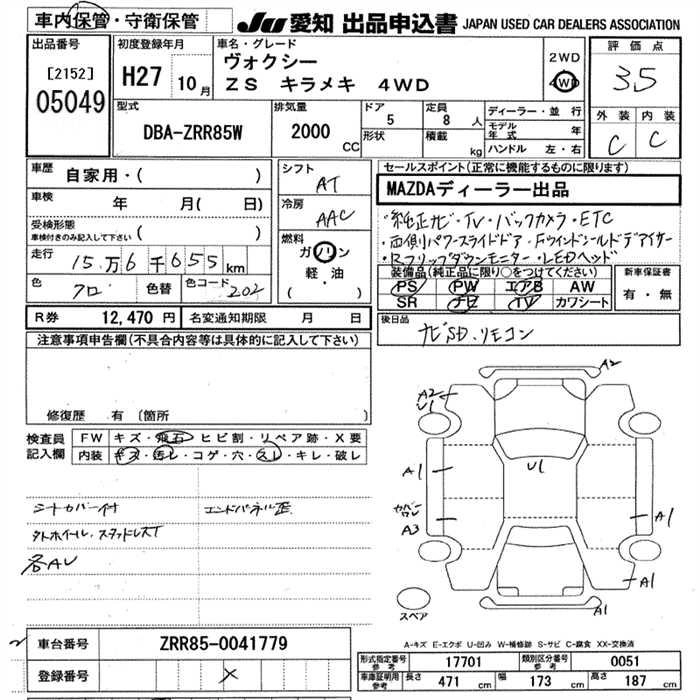 車内保管・守衛保管
JU 愛知 出品申込書 JAPAN USED CAR DEALERS ASSOCIATION
出品番号
[2152]
05049
初度登録年月
H27 10月
車名・グレード
ヴォクシー
ZS キラメキ 4WD
2WD
4WD
評価点
3.5
外装 内装
C C
型式
DBA-ZRR85W
排気量
2000 CC
ドア
5
形状
定員
8 人
積載
kg
ディーラー・並行
モデル年式 年
ハンドル 左・右
車歴 自家用・( )
車検 年 月( 日)
受検形態
車検付きのみ記入して下さい ( )
走行 15万6千655 km
色 クロ 色替 色コード 202
シフト
AT
冷房
AAC
燃料
ガソリン
軽・油
( )
セールスポイント(正常に機能するものに限ります)
MAZDAディーラー出品
・純正ナビ・TV・バックカメラ・ETC
・両側パワースライドドア・Fウインドシールドデアイサー
・Rフリップダウンモニター・LEDヘッド
装備品(純正品に限り○をつけてください)
PS PW エアB AW
SR ナビ TV カワシート
新車保証書
有・無
R券 12,470円 名変通知期限 月 日
後日品
ナビSD、リモコン
注意事項申告欄(不具合内容等は具体的に記入して下さい)
修復歴 有 〔箇所 〕
検査員記入欄
FW キズ・飛石・ヒビ割・リペア跡・X要
内装 キズ・汚レ・コゲ・穴・スレ・キレ・破レ
シートカバー付 エンドパネル歪
外ホイール、スタッドレスT
各AU
A2
A2
U1
A1
U1
カバーワレ
A3
A1
A1
A1
スペア
A-キズ E-エクボ U-凹み W-補修跡 S-サビ C-腐食 XX-交換済
車台番号 ZRR85-0041779
登録番号 X
形式指定番号 参考 17701 類別区分番号 参考 0051
車庫証明用 参考 長さ 471 cm 幅 173 cm 高さ 187 cm